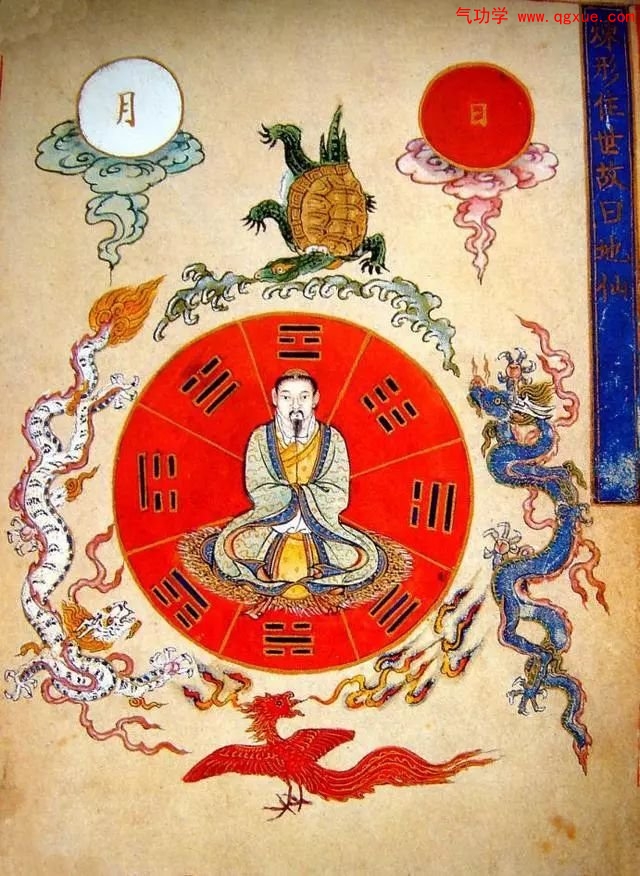 气功学 www.qgxue.com
炼形住世故曰地仙
月
日